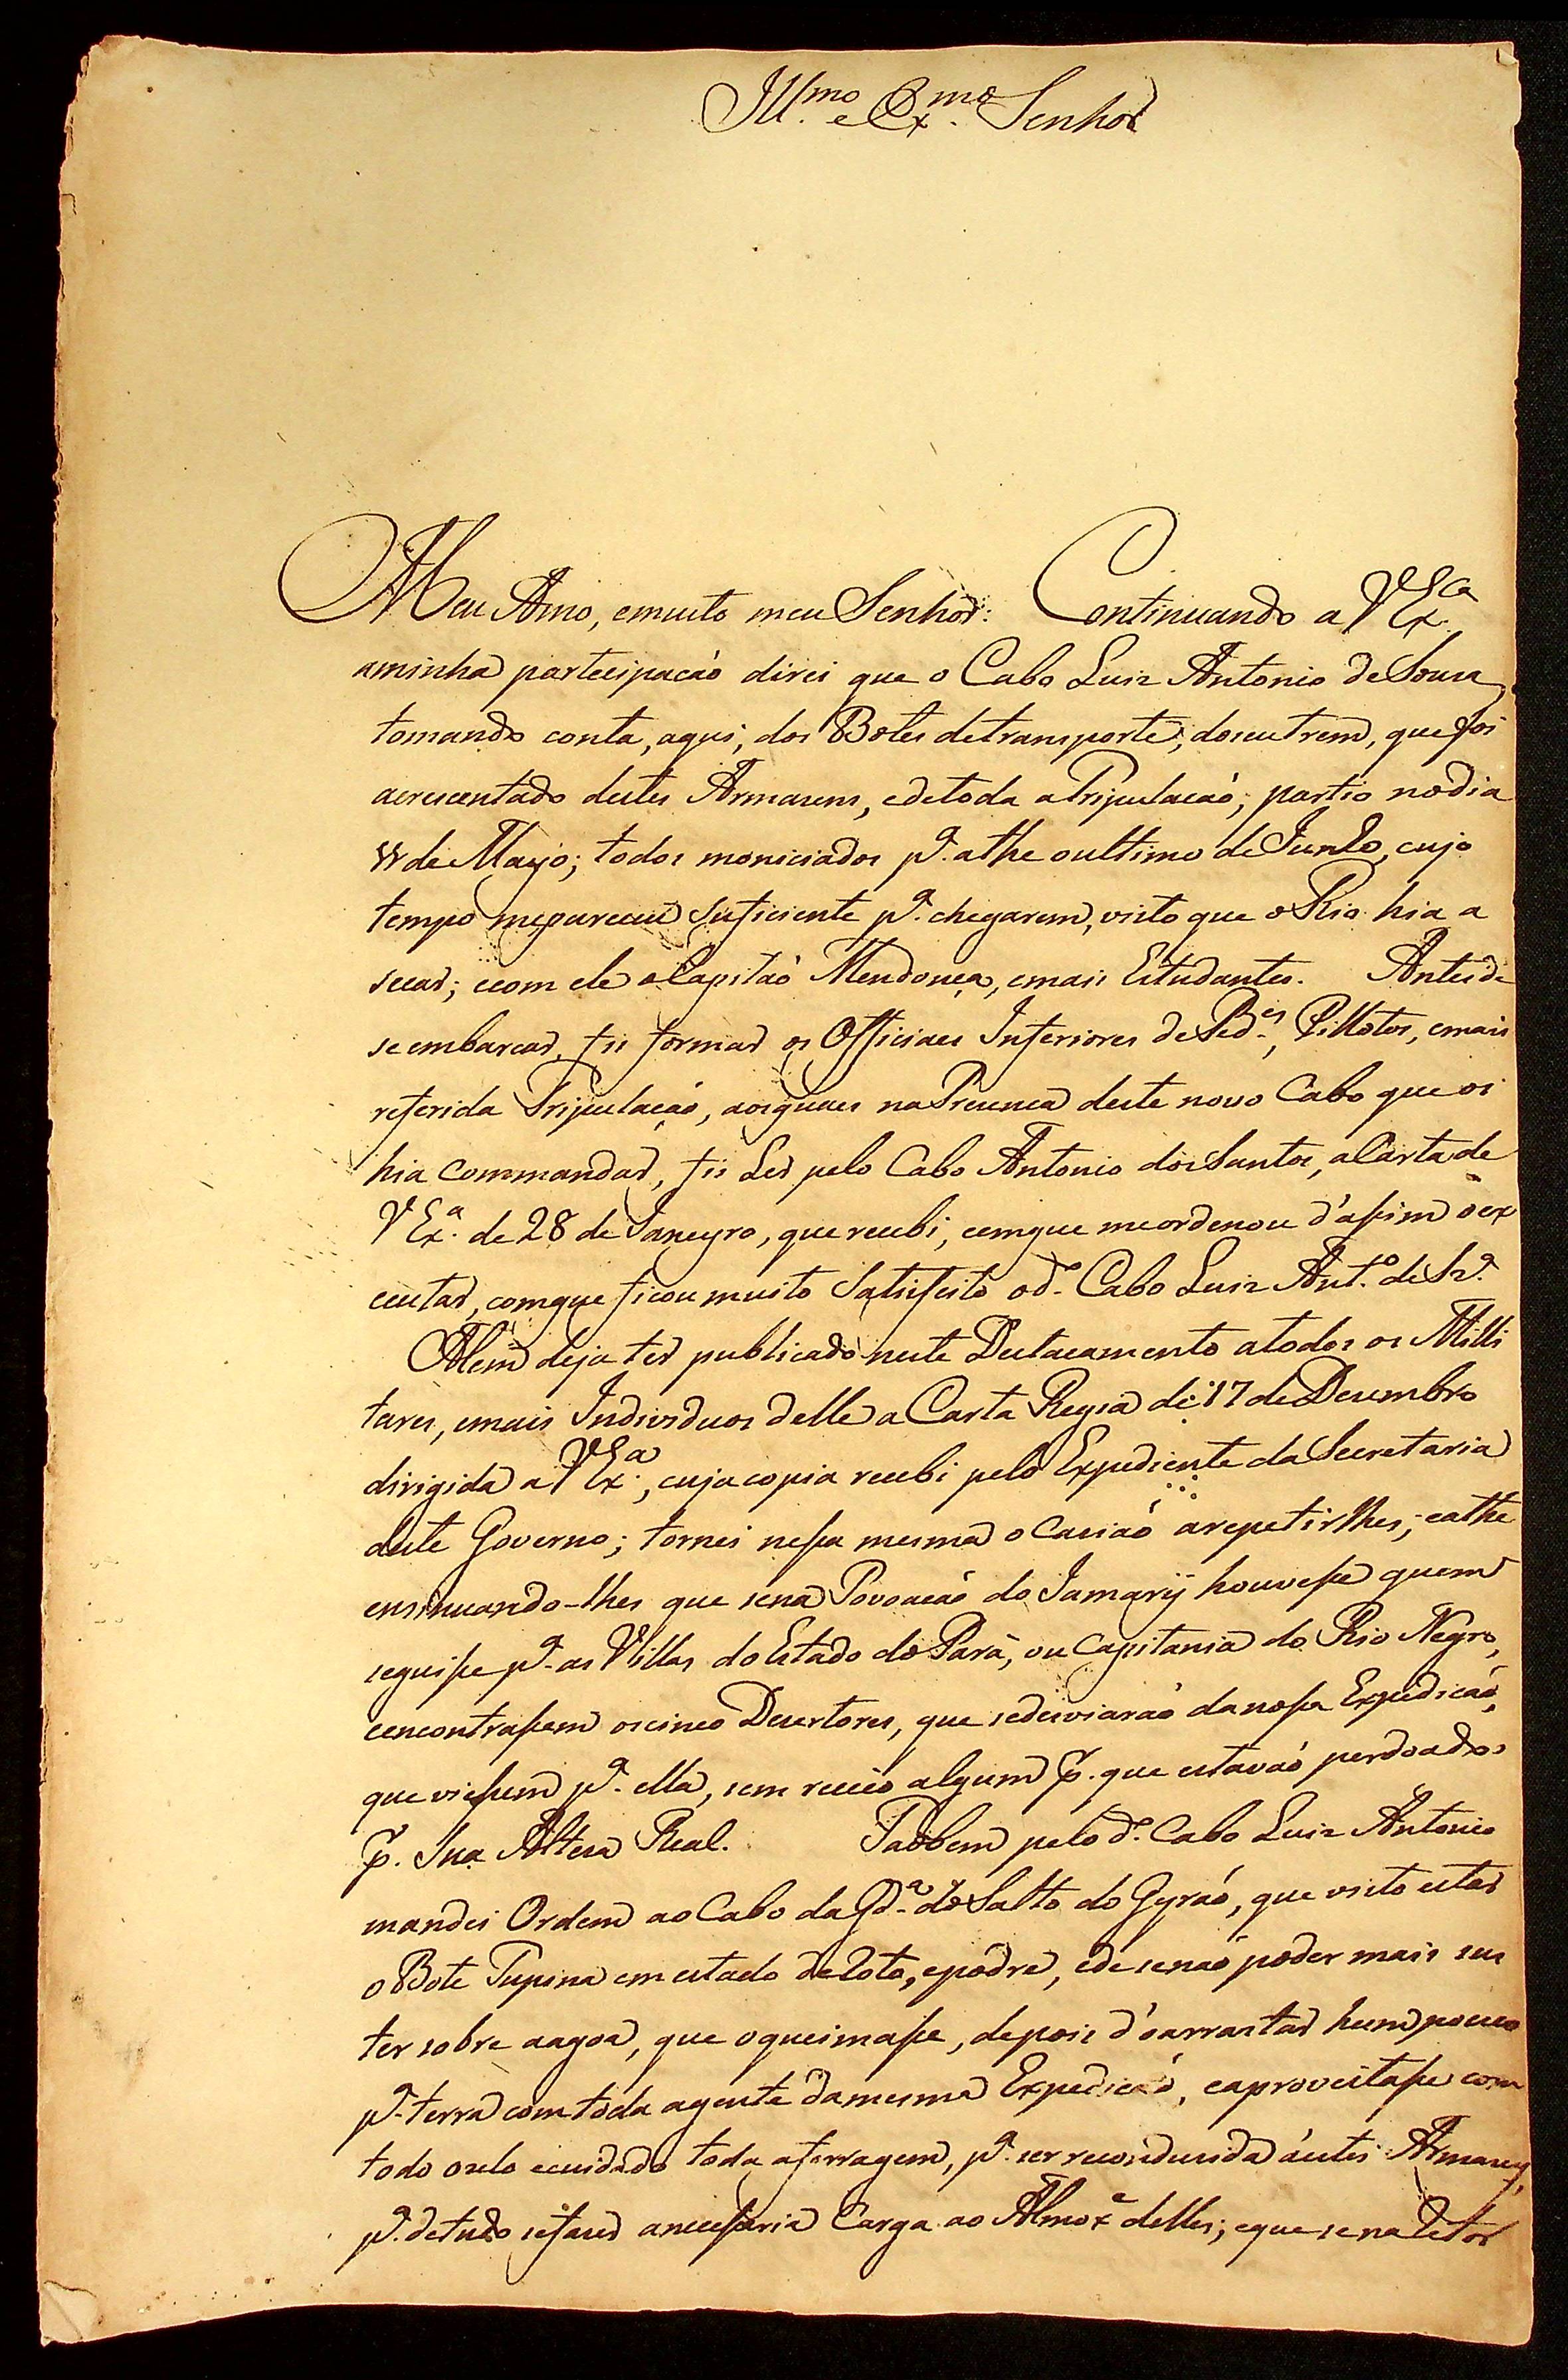 Ill.mo e Ex.mo Senhor
Meu Amo, emuito meu Senhor: Continuando a V Ex.ca
aminha partecipação direi que o Cabo Luiz Antonio de Sousa,
tomando conta, aqui, dos Botes detransporte, doseutrem, que foi
acrescentado destes Armasens, edetoda aTripulação; partio nodia
de Mayo; todos moniciados p.a athe oultimo de Junho, cujo
tempo mepareceu suficiente p.a chegarem, visto que o Rio hia a
secar; ecom ele oCapitaõ Mendonça, emais Estudantes. Antesde
se embarcar, fis formar os Officiaes Inferiores de Ped.es, Pillotos, emais
referida Tripulação, aosquaes naPresença deste novo Cabo que os
hia Commandar, fis Ler pelo Cabo Antonio dos Santos, aCarta de
V Ex.a de 28 de Janeyro, que recebi, eemque meordenou d'assim oex
ecutar, comque ficou muito Satisfeito od.o Cabo Luiz Ant.o de Sz.a
Alem deja ter publicado neste Destacamento atodos os Milli
tares, emais Individuos delle a Carta Regia de 17 de Desembro
dirigida a V Ex.a, cuja copia recebi pelo Expediente da Secretaria
deste Governo; tornei nessa mesma oCasiaõ arepetirlhes; eathe
ensinuando-lhes que sena Povoação do Jamarÿ houvesse quem
seguisse p.a as Villas do Estado do Pará, ou Capitania do Rio Negro,
eencontrassem oscinco Desertores, que sedesviaraõ danossa Expedição,
que viessem p.a ella, sem receio algum p. que estavaõ perdoados
p. Sua Altesa Real. Taõbem pelo d.o Cabo Luiz Antonio
mandei Ordem ao Cabo da Gd.a do Salto do Gyraõ, que visto estar
o Bote Tupina em estado de Roto, epodre, ede senaõ poder mais sus
ter sobre aagoa, que oqueimasse, depois d'oarrastar hum pouco
p.a terra com toda agente damesma Expedição, eaproveitasse com
todo ozelo ecuidado toda aferragem, p.a ser recondusida áestes Armasens,
p.a detudo sefaser anecessaria Carga ao Almox.e delles; eque se na